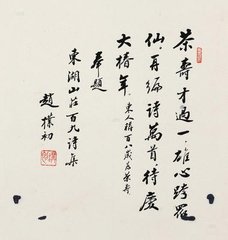 茶壽才過一，雄心跨羅
仙，再編詩萬首，待慶
大椿年。東人稱百八歲為茶壽
奉題
東湖山莊百九詩集
趙樸初